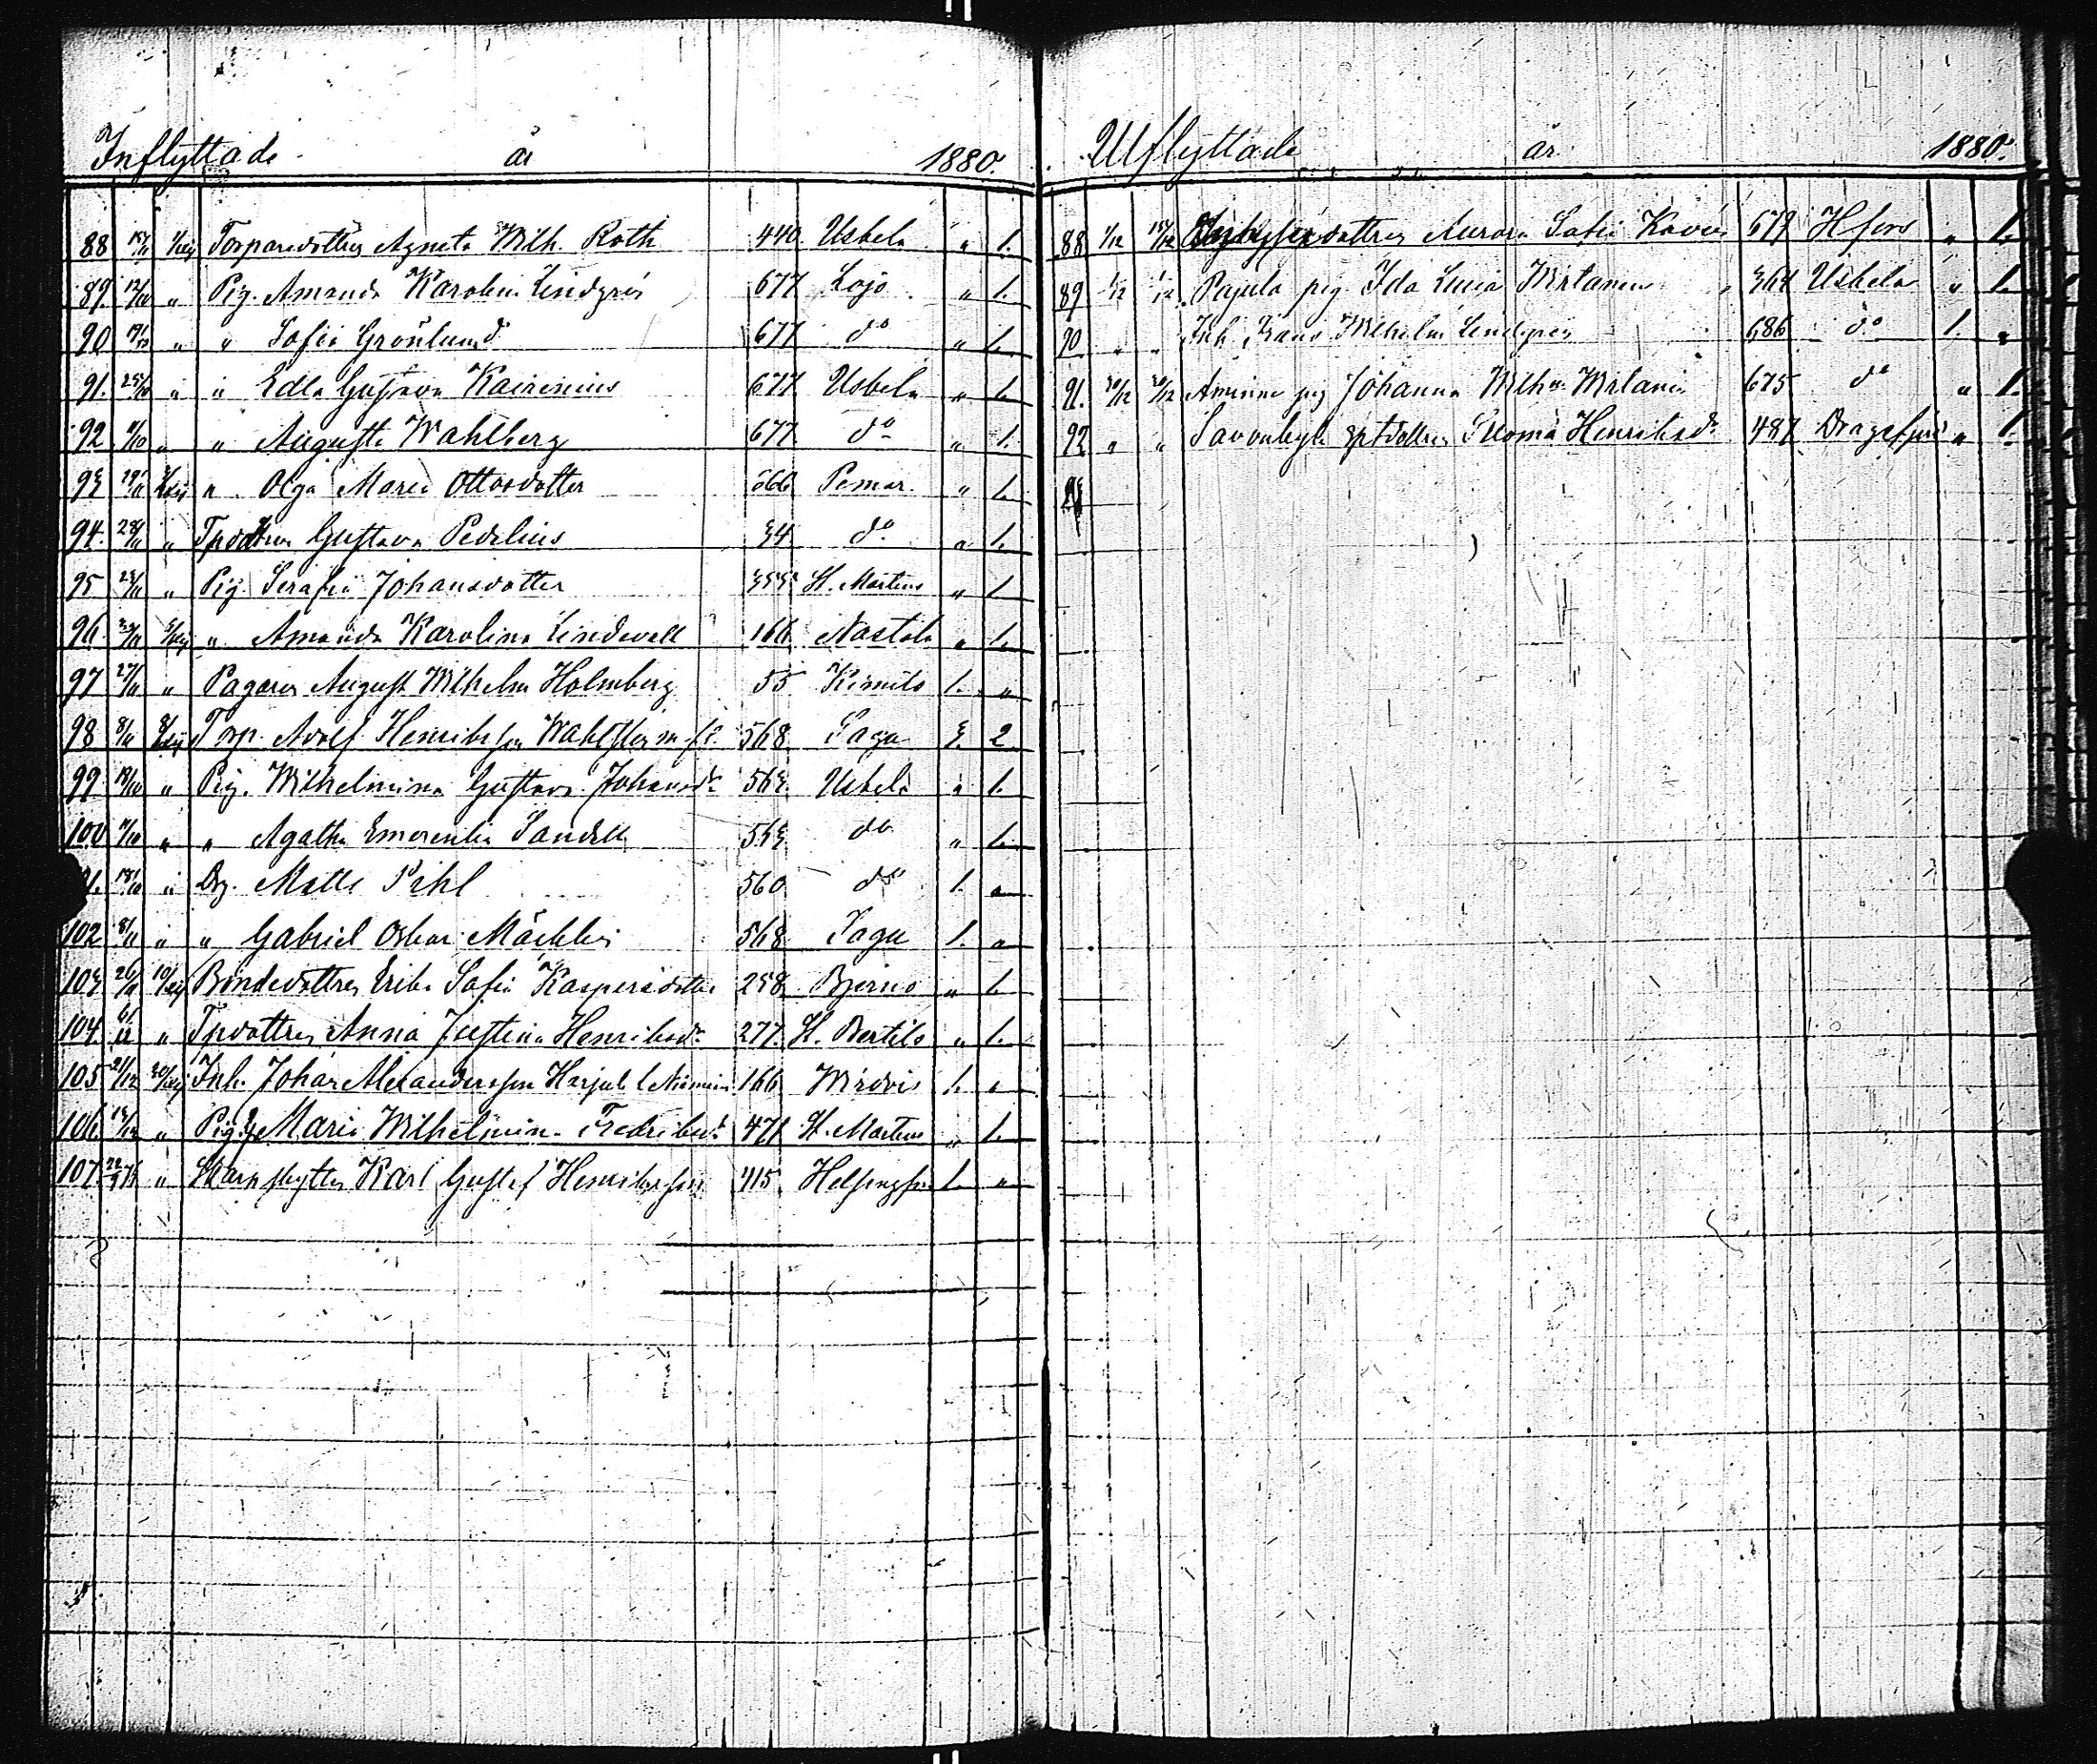 Inflyttade år 1880.
88 Torparedottren Agneta Wilh. Roth 440 Uskela " 1.
89. 12/10 " Pig. Amanda Karolin. Lindgrén 677 Lojo " 1.
90 " " Sofia Grönlund 677 do " 1.
91. 25/10 " " Edla Gustava Kairenius 677 Uskela " 1.
92 " " Augusta Wahlberg 677 do " 1.
93 19/11 " Olga Maria Ottosdotter 566 Pemar " 1.
94. 28/11 " Gustava Pedelius 34 do " 1.
95 " Pig. Serafia Johansdotter St. Mårtens " 1.
96. " Amanda Karolina Lindevall 166 Nastola " 1.
97 27/11 " August Wilhelm Holmberg 55 Kimito 1. "
98 8/11 Torp. Adolf Henriksson 568 Sagu 3. 2
99 18/10 " Pig. Wilhelmina Gustava Johansdr 563. Uskela " 1.
100 " " Agatha Emerentia Sandell 563 do " 1.
18/10 " Dr. Matts Pihl 560 do 1. "
102 8/11 " " Gabriel Oskar 568 Sagu 1. "
103 26/11 Bondedottren Erika Sofia Kaspersdotter 258 Bjerno " 1.
104. " Tpdottren Anna Justina Henriksdr 277. St. Bertils " 1.
105 21/12 Inh. Johan Alexandersson Harjula l. Nieminen 166 Wirdois 1. "
106. " Pig. Maria Wilhelmina Fredriksdr 471 St. Mårtens " 1.
107. " Skarpskytten Karl Gustaf Henriksson 415 Helsingfors 1. "
Utflyttade år 1880.
88 1/12 18/12 Aurora Sofia 679 Hfors " 1.
89 1/12 1/12 Pajula pig. Ida Lucia Wirtanen 364 Uskela " 1.
90 " " Inh. Frans Wilhelm Lindgren 686 do 1. "
91. 20/12 20/12 Aminne pig Johanna Wilh. Wirtanen 675 do " 1.
92 " " Henriksdr 487 Dragsfjärd " 1.